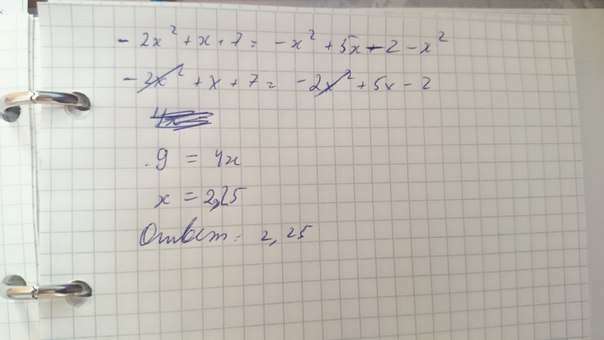 - 2x² + x + 7 = - x² + 5x - 2 - x²
- 2x² + x + 7 = - 2x² + 5x - 2
9 = 4x
x = 2,25
Ответ: 2,25